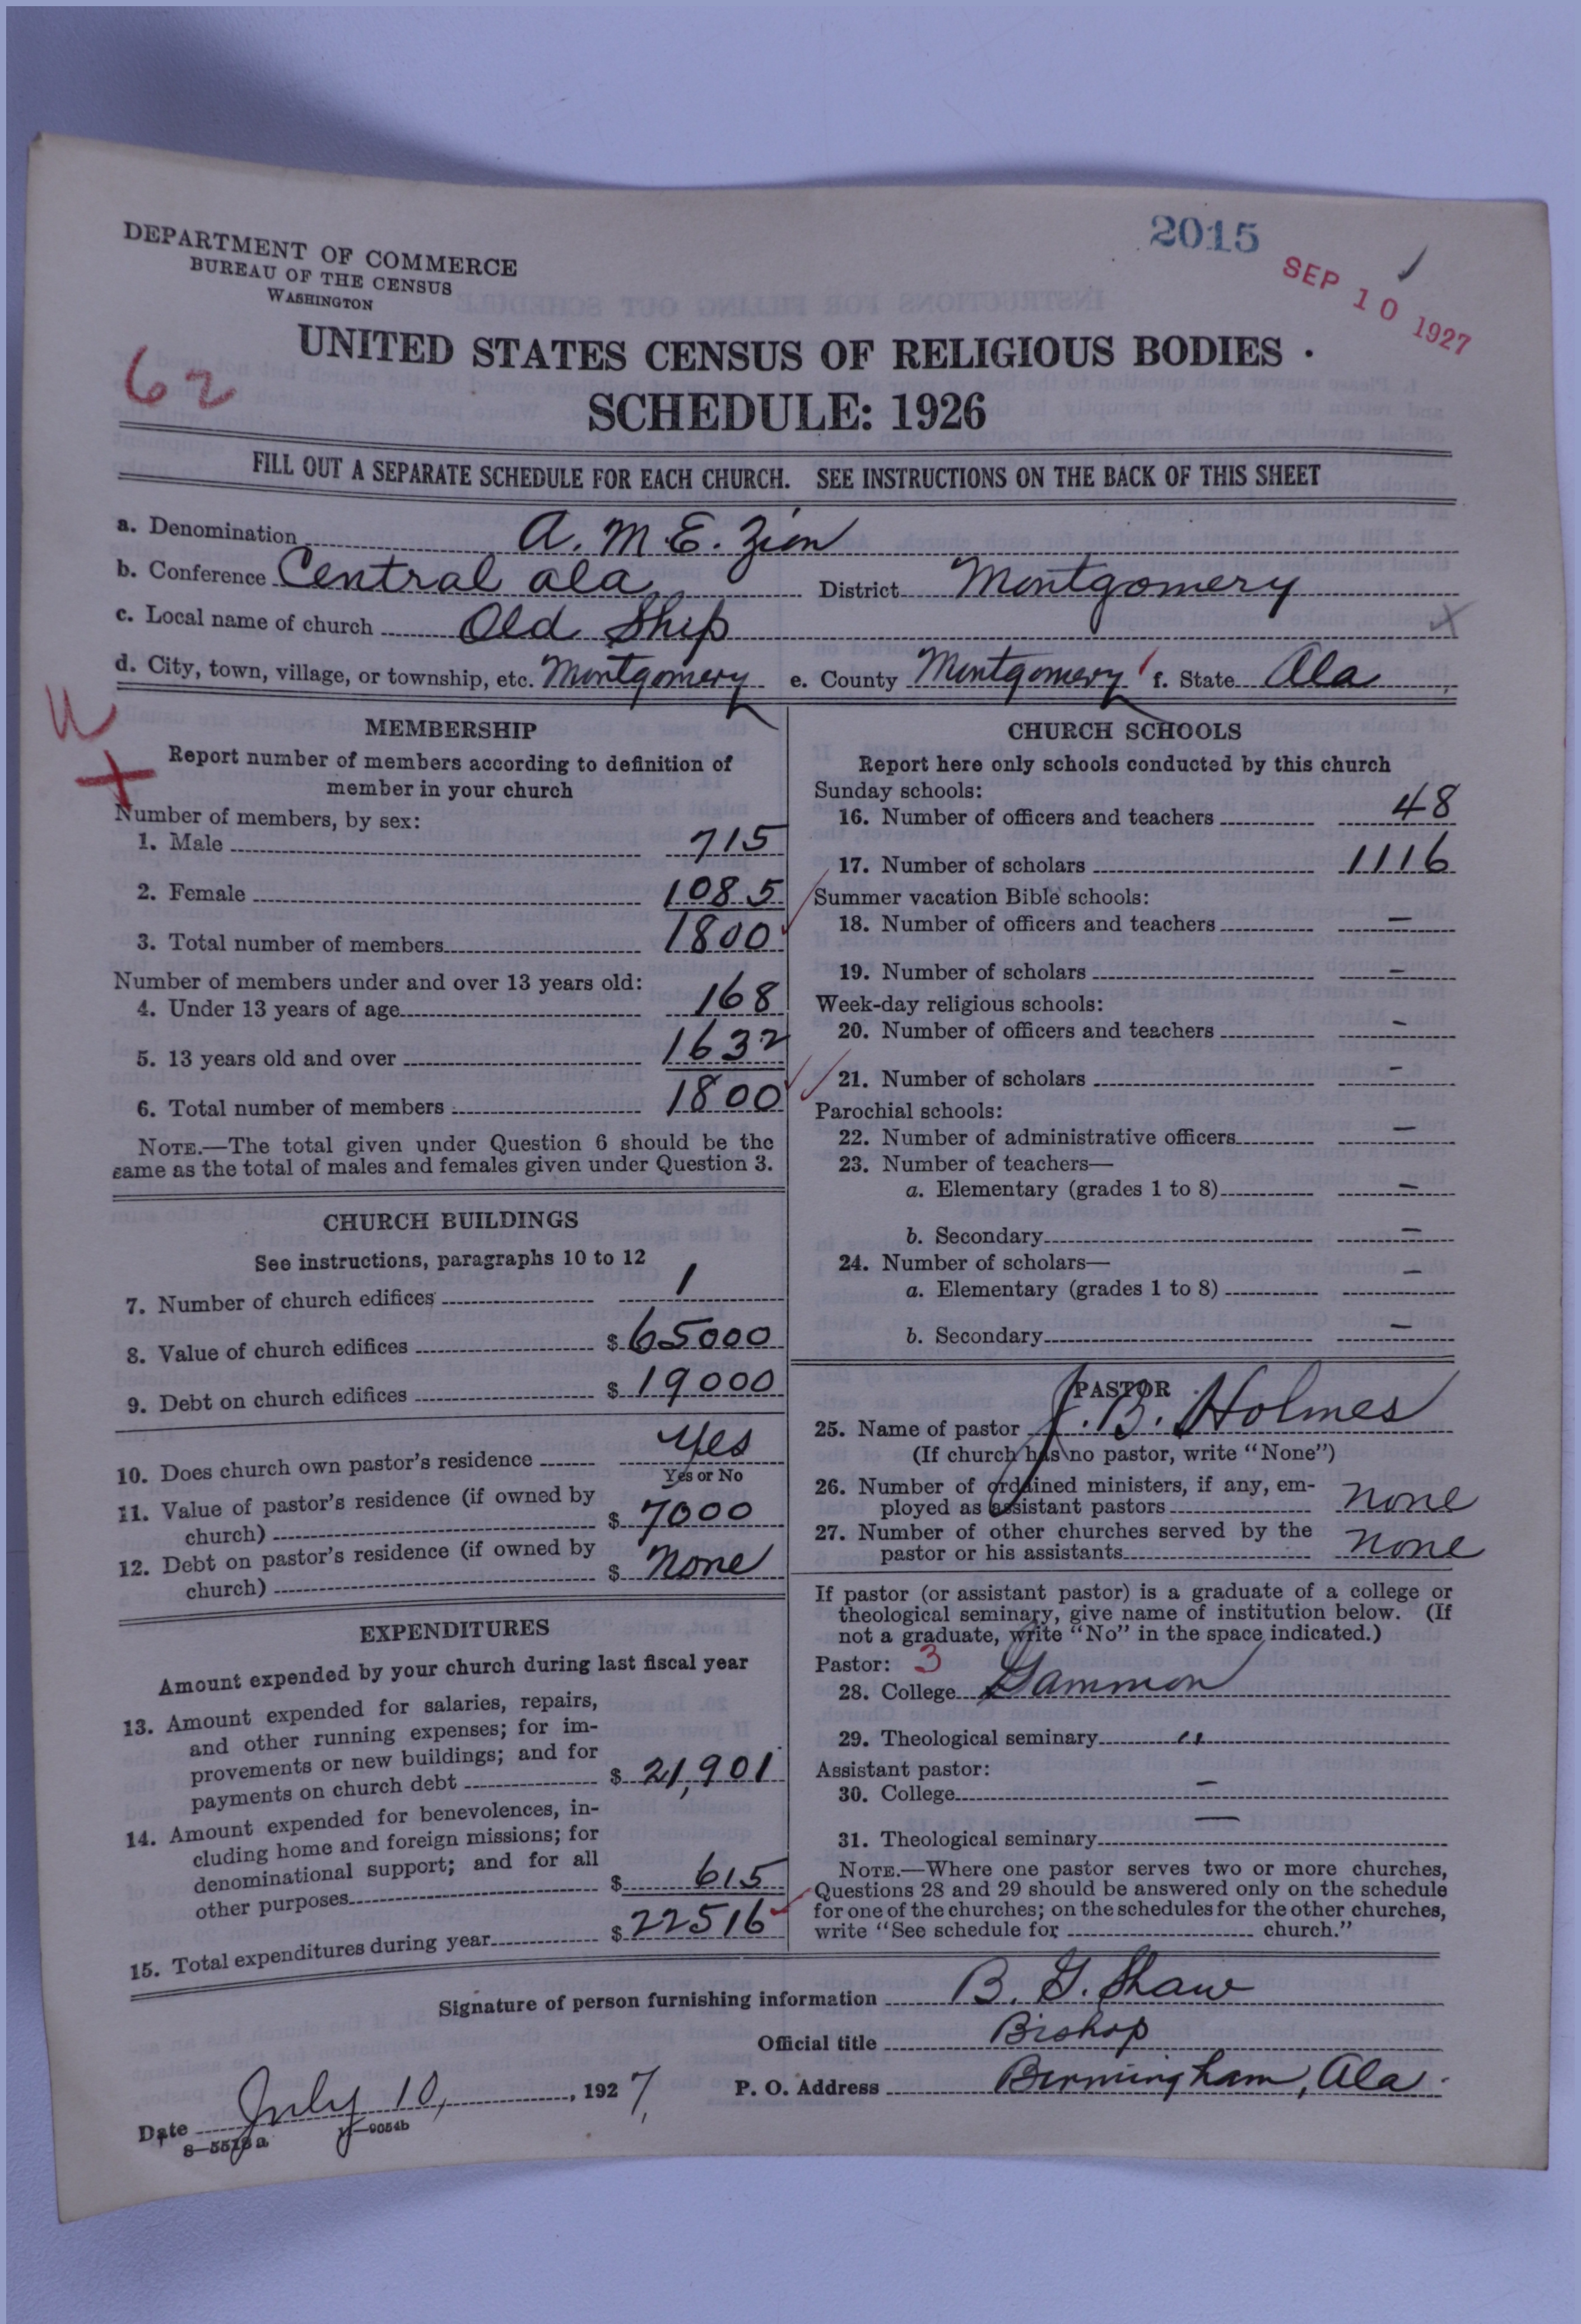 2015
SEP 10 1927
DEPARTMENT OF COMMERCE
BUREAU OF THE CENSUS
WASHINGTON
62
UNITED STATES CENSUS OF RELIGIOUS BODIES
SCHEDULE: 1926
FILL OUT A SEPARATE SCHEDULE FOR EACH CHURCH. SEE INSTRUCTIONS ON THE BACK OF THIS SHEET
a. Denomination A. M. E. Zion
b. Conference Central Ala District Montgomery
c. Local name of church Old Ship
d. City, town, village, or township, etc. Montgomery e. County Montgomery f. State Ala
MEMBERSHIP
Report number of members according to definition of
member in your church
Number of members, by sex:
1. Male 715
2. Female 1085
3. Total number of members 1800
Number of members under and over 13 years old:
4. Under 13 years of age 168
5. 13 years old and over 1632
6. Total number of members 1800
NOTE.—The total given under Question 6 should be the
same as the total of males and females given under Question 3.
CHURCH BUILDINGS
See instructions, paragraphs 10 to 12
7. Number of church edifices 1
8. Value of church edifices $ 65000
9. Debt on church edifices $ 19000
10. Does church own pastor's residence Yes
Yes or No
11. Value of pastor's residence (if owned by
church) $ 7000
12. Debt on pastor's residence (if owned by
church) $ None
EXPENDITURES
Amount expended by your church during last fiscal year
13. Amount expended for salaries, repairs,
and other running expenses; for im-
provements or new buildings; and for
payments on church debt $ 21,901
14. Amount expended for benevolences, in-
cluding home and foreign missions; for
denominational support; and for all
other purposes $ 615
15. Total expenditures during year $ 22516
CHURCH SCHOOLS
Report here only schools conducted by this church
Sunday schools:
16. Number of officers and teachers 48
17. Number of scholars 1116
Summer vacation Bible schools:
18. Number of officers and teachers —
19. Number of scholars —
Week-day religious schools:
20. Number of officers and teachers —
21. Number of scholars —
Parochial schools:
22. Number of administrative officers —
23. Number of teachers—
a. Elementary (grades 1 to 8) —
b. Secondary —
24. Number of scholars—
a. Elementary (grades 1 to 8) —
b. Secondary —
PASTOR
25. Name of pastor J. B. Holmes
(If church has no pastor, write "None")
26. Number of ordained ministers, if any, em-
ployed as assistant pastors none
27. Number of other churches served by the
pastor or his assistants none
If pastor (or assistant pastor) is a graduate of a college or
theological seminary, give name of institution below. (If
not a graduate, write "No" in the space indicated.)
Pastor: 3
28. College Gammon
29. Theological seminary "
Assistant pastor:
30. College —
31. Theological seminary —
NOTE.—Where one pastor serves two or more churches,
Questions 28 and 29 should be answered only on the schedule
for one of the churches; on the schedules for the other churches,
write "See schedule for church."
Signature of person furnishing information B. G. Shaw
Official title Bishop
Date July 10, 1927, P. O. Address Birmingham, Ala.
8—5518a 11—9054b